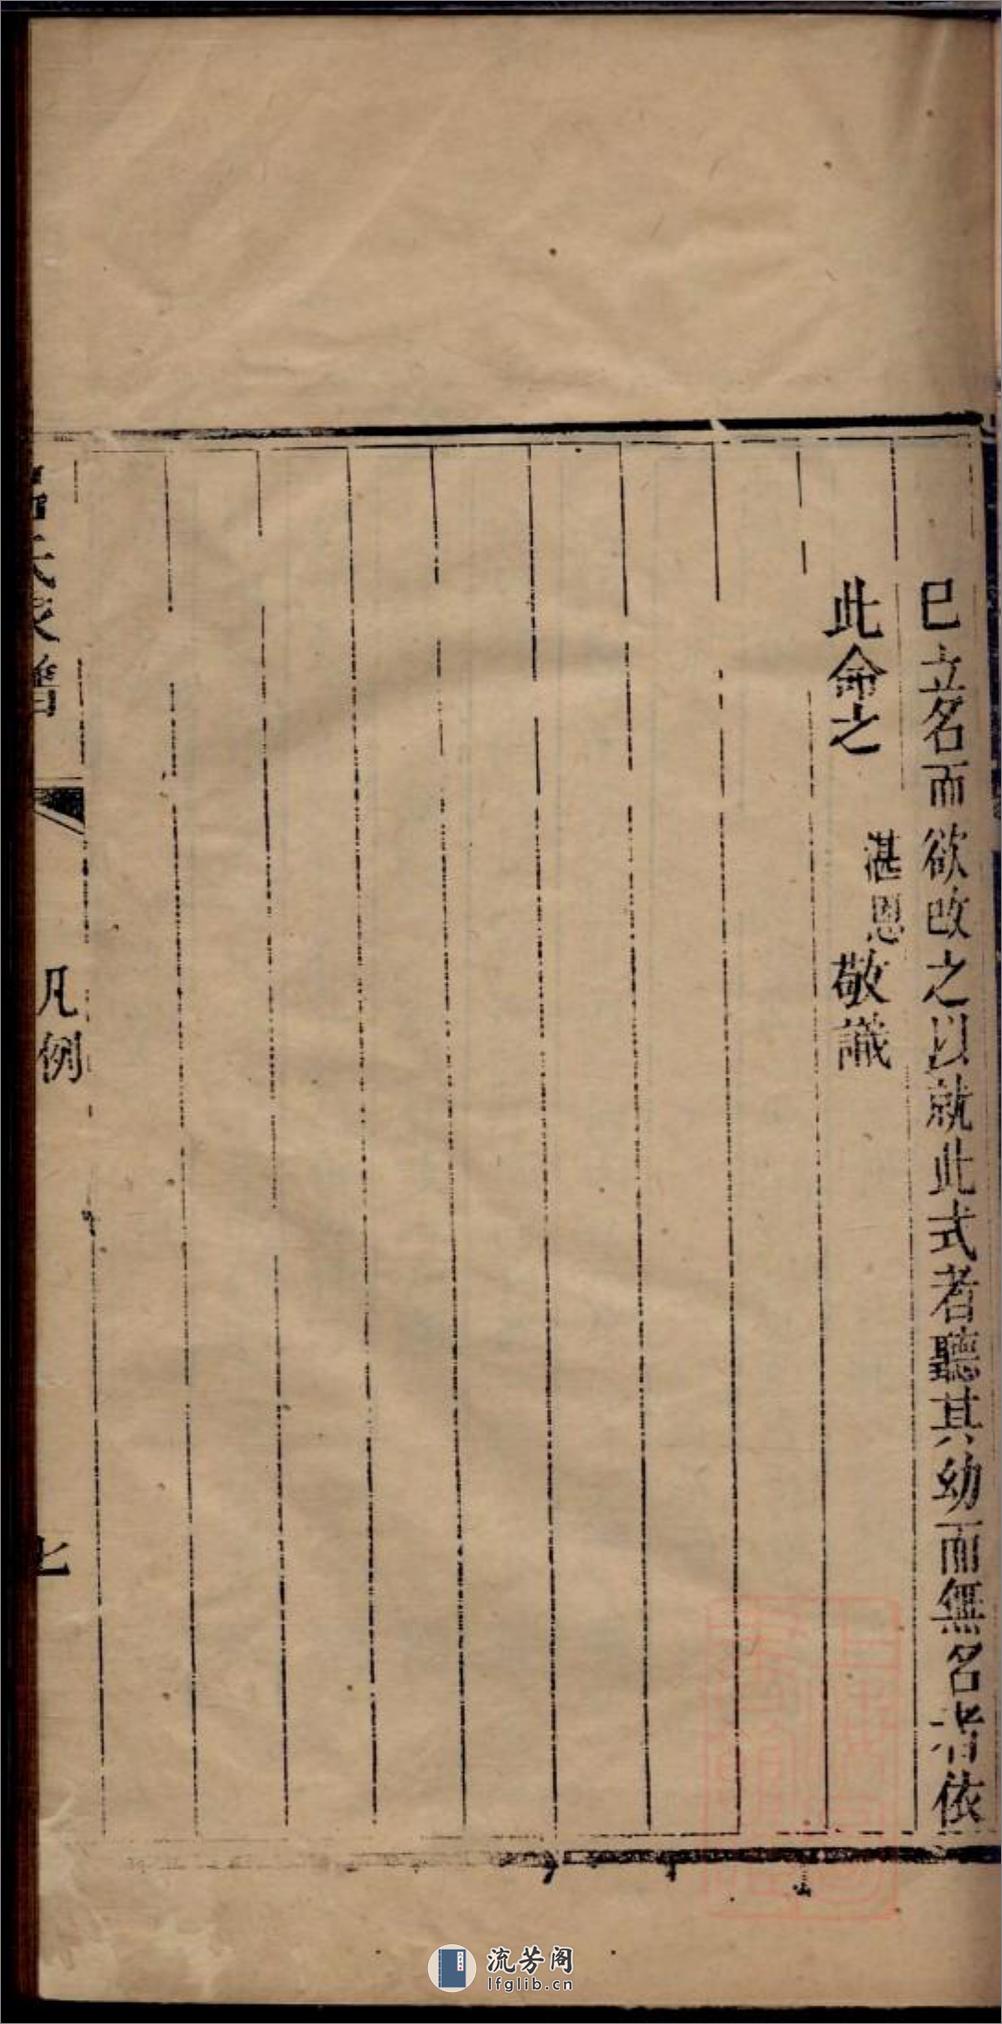 已立名而欲改之以就此式者聽其幼而無名者依
此命之
湛恩
敬識
氏家譜
凡例
七
流芳阁
lfglib.cn